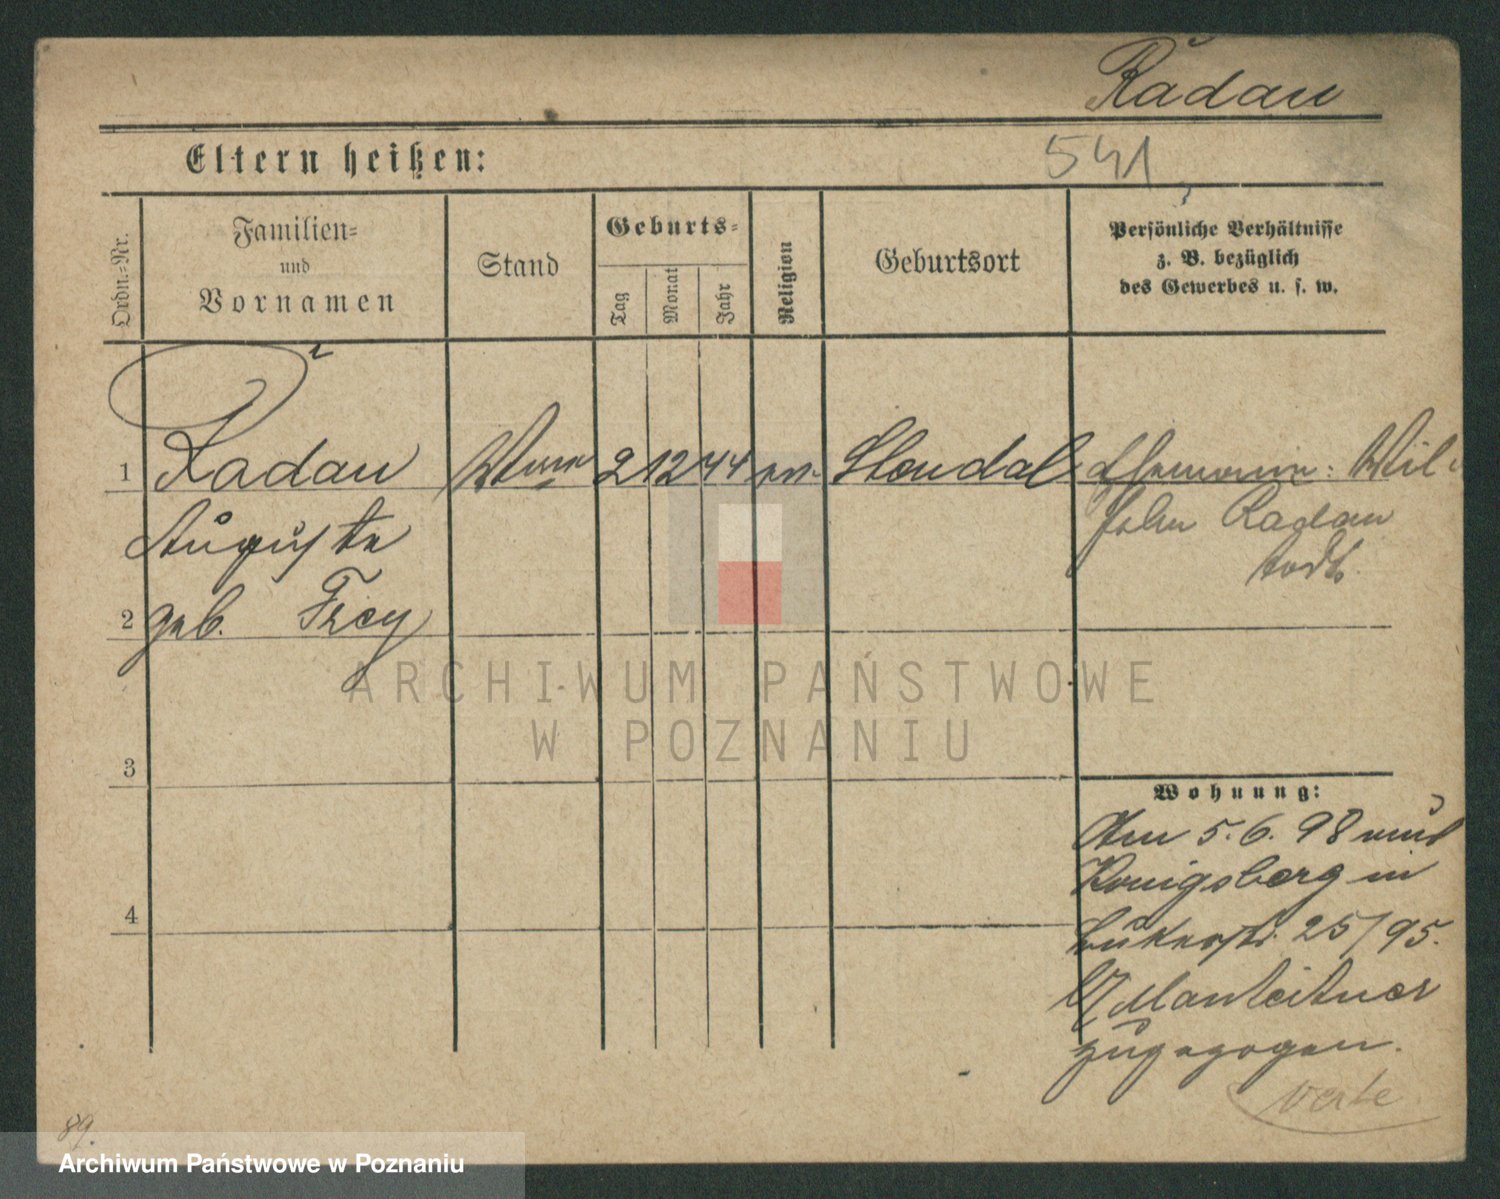 Radau
541
Eltern heißen:
Ordn.=Nr.
Familien=
und
Vornamen
Stand
Geburts=
Tag
Monat
Jahr
Religion
Geburtsort
Persönliche Verhältnisse
z. B. bezüglich
des Gewerbes u. s. w.
1 Radau Wwe 2 12 44 ev. Stendal Ehemann: Wil-
Auguste
helm Radau
todt.
2 geb. Frey
ARCHIWUM PAŃSTWOWE
W POZNANIU
3
Wohnung:
Am 5.6.98 aus
Königsberg in
25/95.
4
b/ Manteitner
zugezogen.
verte
89.
Archiwum Państwowe w Poznaniu